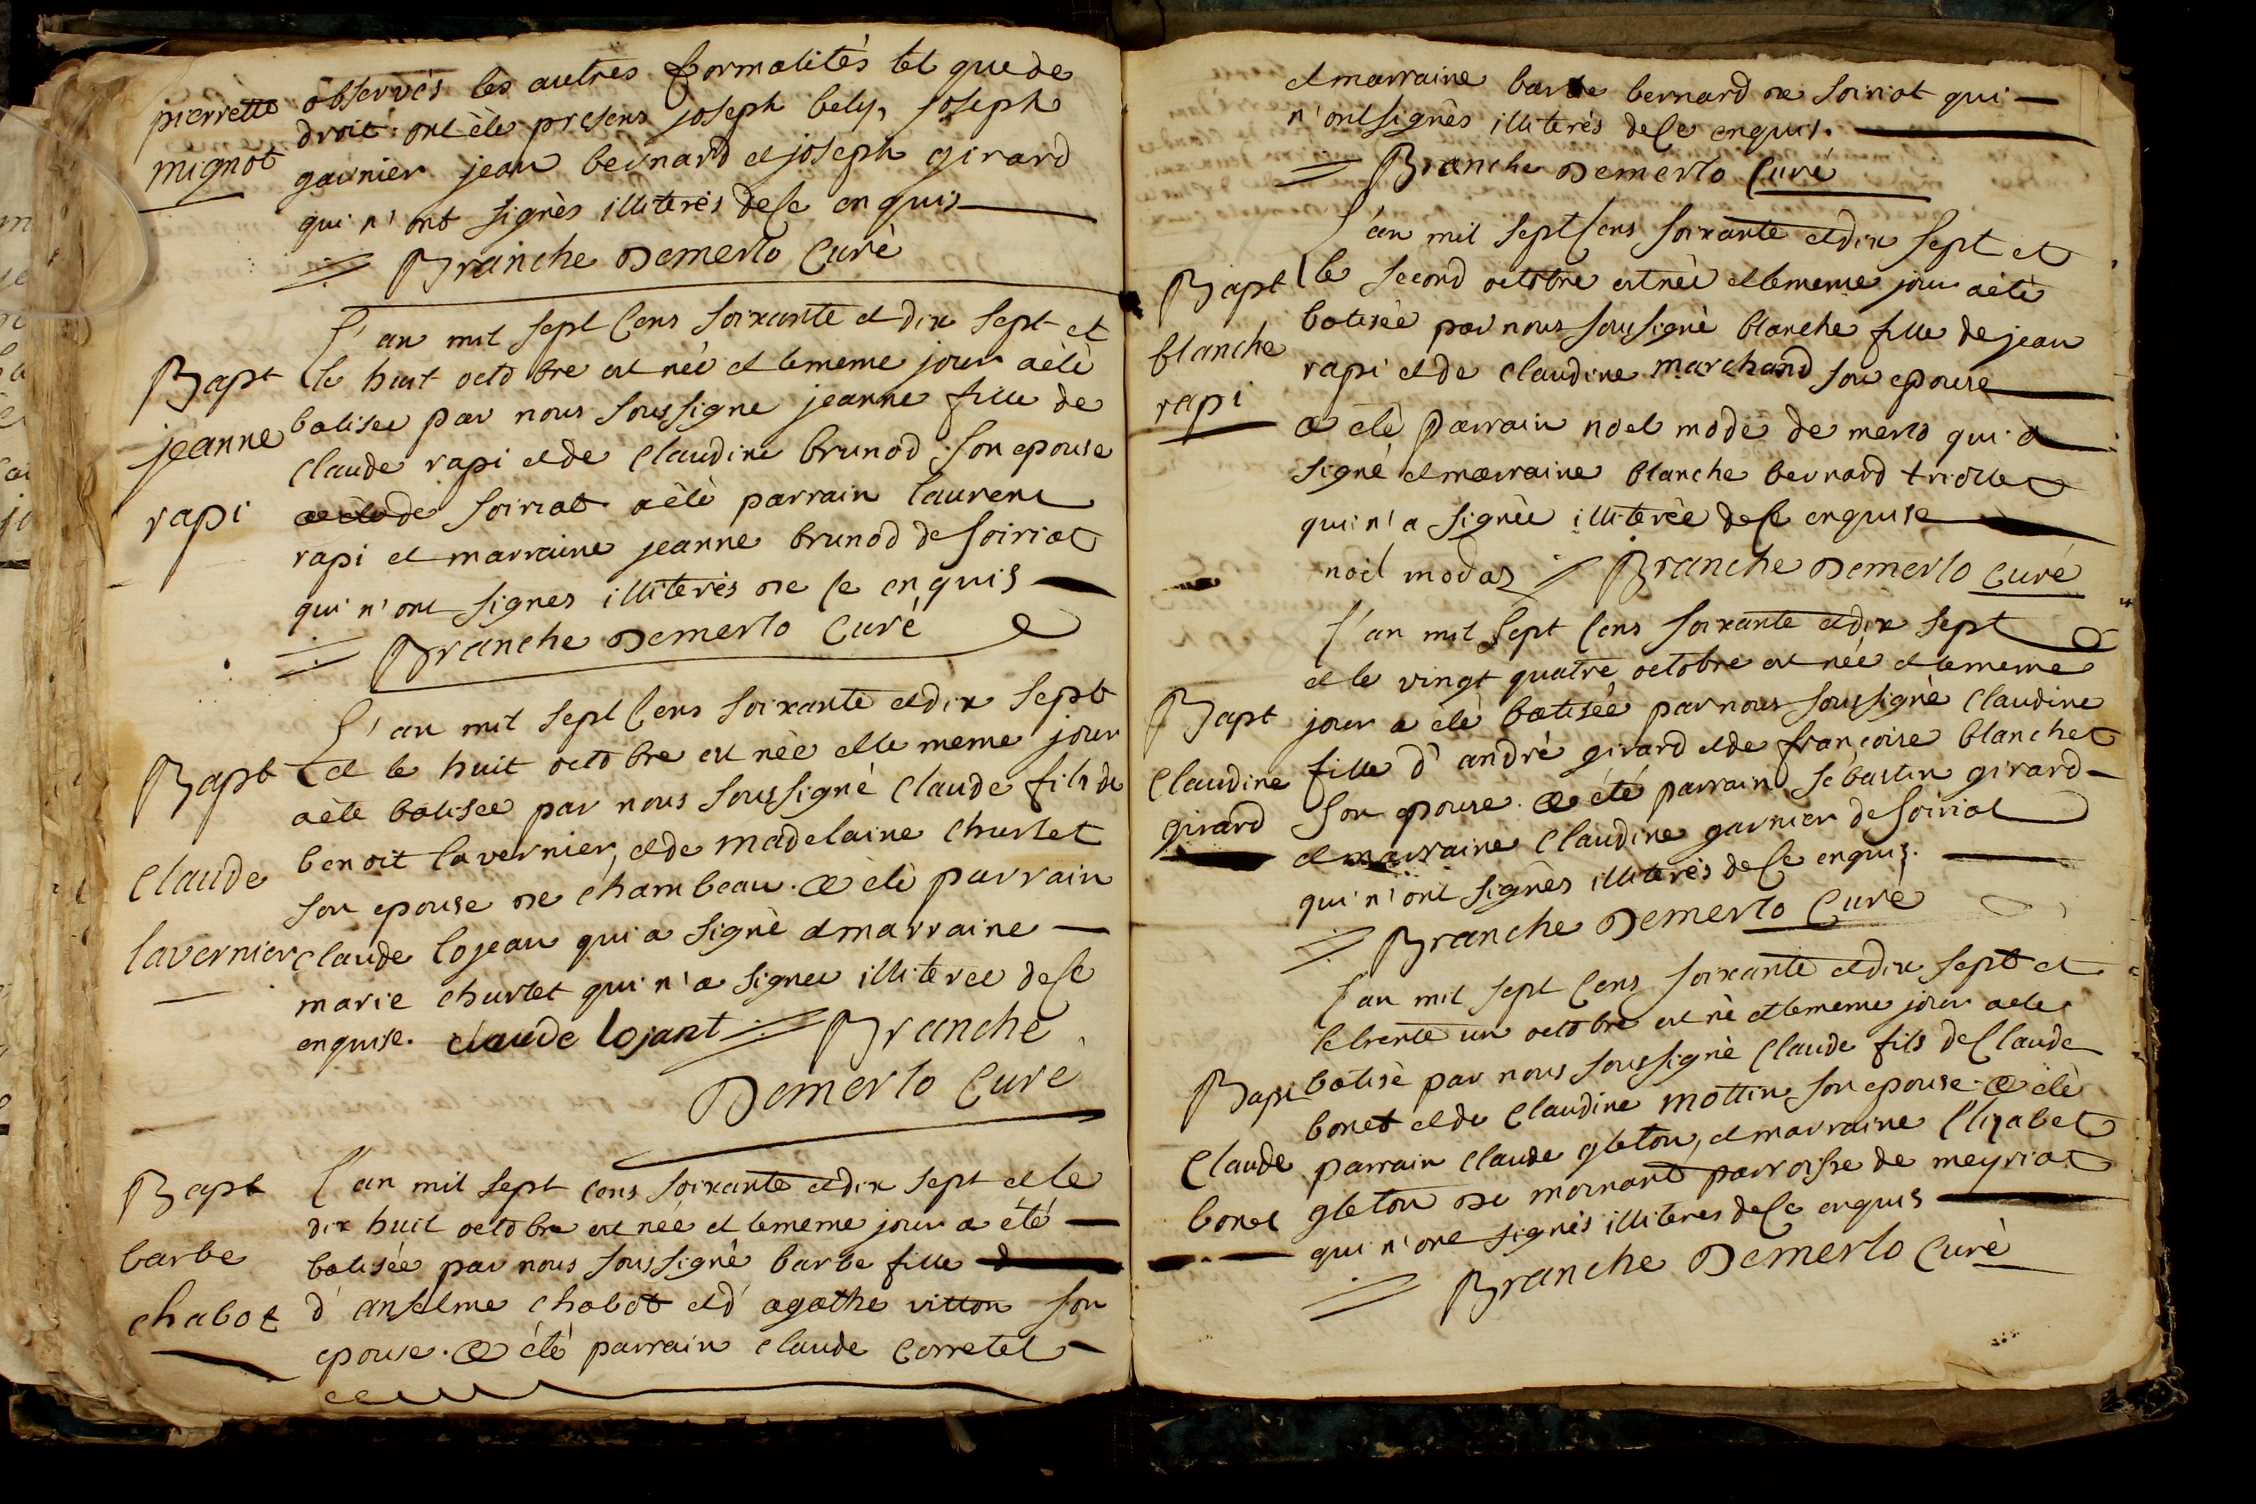 pierrette
mignot
observés les autres formalités tel que de
droit. ont èté presens joseph bely, joseph
garnier jean bernard et joseph girard
qui n'ont signès illiterès de ce enquis
Branche Demerlo Curè
Bapt
jeanne
rapi
L'an mil sept Cens soixante et dix sept et
le huit octobre est née et le meme jour a èté
batisée par nous soussigne jeanne fille de
Claude rapi et de Claudine brunod son epouse
de soiriat a èté parrain laurent
rapi et marraine jeanne brunod de soiriat
qui n'ont signes illiterès de ce enquis
Branche Demerlo Curé
Bapt
Claude
lavernier
L'an mil sept Cens soixante et dix sept
et le huit octobre est nèe et le meme jour
a èté batisee par nous soussigné Claude fils de
benoit lavernier, et de madelaine Churlet
son epouse de chambeau. a èté parrain
Claude lojeau qui a signè et marraine
marie churlet qui n'a signée illiterée de ce
enquise. claude lojant Branche
Demerlo Curè
Bapt
barbe
chabot
L'an mil sept cens soixante et dix sept et le
dix huit octobre est née et le meme jour a été
batisée par nous soussigné barbe fille
d'anselme chabot et d'agathe vitton son
epouse. a été parrain claude Corretel
et marraine barbe bernard de soiriat qui
n'ont signès illiterès de ce enquis.
Branche Demerlo Curé
Bapt
blanche
rapi
L'an mil sept Cens soixante et dix sept et
le second octobre est née et le meme jour a èté
batisée par nous soussigné blanche fille de jean
rapi et de Claudine marchand son epouse
a èté parrain noel modé de merlo qui a
signé et marraine blanche bernard triollet
qui n'a signèe illiterèe de ce enquise
noël modas Branche Demerlo Curé
Bapt
Claudine
girard
L'an mil sept Cens soixante et dix sept
et le vingt quatre octobre est née et le meme
jour a èté batisée par nous soussigné Claudine
fille d'andré girard et de françoise blanchet
son epouse. a été parrain sébastin girard
et marraine Claudine garnier de soiriat
qui n'ont signès illiterès de ce enquis.
Branche Demerlo Curè
Bapt
Claude
bonet
L'an mil sept Cens soixante et dix sept et
le trente un octobre est né et le meme jour a èté
batisè par nous soussigné Claude fils de Claude
bonet et de Claudine mottin son epouse. a èté
parrain Claude gleton, et marraine Elizabet
gleton de mornant parroisse de meyriat
qui n'ont signès illiteres de ce enquis
Branche Demerlo Curè